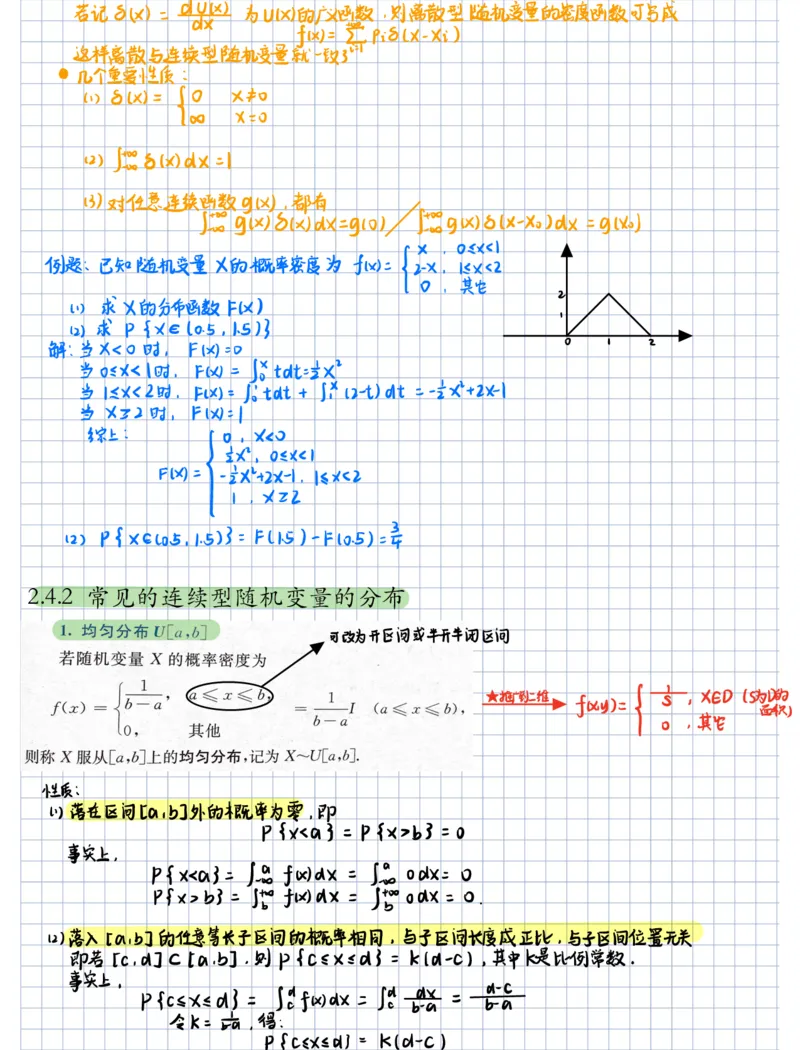 若记 δ(x) = dU(x)/dx 为U(x)的广义函数，则离散型随机变量的密度函数可写成
f(x) = Σ_{i=1}^{+∞} Piδ(x-xi)
这样离散与连续型随机变量就一致了
• 几个重要性质：
(1) δ(x) = { 0 x≠0
∞ x=0
(2) ∫_{-∞}^{+∞} δ(x)dx = 1
(3) 对任意连续函数g(x)，都有
∫_{-∞}^{+∞} g(x)δ(x)dx=g(0) / ∫_{-∞}^{+∞} g(x)δ(x-x₀)dx = g(x₀)
例题：已知随机变量 X的概率密度为 f(x)= { x , 0≤x<1
2-x , 1≤x<2
0 , 其它
2
1
0 1 2
(1) 求X的分布函数F(x)
(2) 求 P{X∈(0.5,1.5)}
解：当x<0时，F(x)=0
当0≤x<1时，F(x) = ∫_0^x tdt=½x²
当1≤x<2时，F(x)= ∫_0^1 tdt + ∫_1^x (2-t)dt = -½x²+2x-1
当 x≥2时，F(x)=1
综上：
F(x) = { 0 , x<0
½x² , 0≤x<1
-½x²+2x-1 , 1≤x<2
1 , x≥2
(2) P{X∈(0.5,1.5)} = F(1.5)-F(0.5)=3/4
2.4.2 常见的连续型随机变量的分布
1. 均匀分布U[a,b]
可改为开区间或半开半闭区间
若随机变量 X 的概率密度为
f(x) = { 1/(b-a), a≤x≤b, = 1/(b-a) I (a≤x≤b),
0, 其他
★推广到二维
f(x,y)= { 1/S , X∈D (S为D的面积)
0 , 其它
则称 X 服从[a,b]上的均匀分布,记为 X~U[a,b].
性质：
(1) 落在区间[a,b]外的概率为零，即
P{x<a} = P{x>b} = 0
事实上，
P{x<a} = ∫_{-∞}^a f(x)dx = ∫_{-∞}^a 0dx = 0
P{x>b} = ∫_b^{+∞} f(x)dx = ∫_b^{+∞} 0dx = 0.
(2) 落入[a,b]的任意等长子区间的概率相同，与子区间长度成正比，与子区间位置无关
即若[c,d]⊂[a,b]，则P{c≤x≤d} = k(d-c)，其中k是比例常数.
事实上，
P{c≤x≤d} = ∫_c^d f(x)dx = ∫_c^d dx/(b-a) = (d-c)/(b-a)
令k= 1/(b-a)，得：
P{c≤x≤d} = k(d-c)